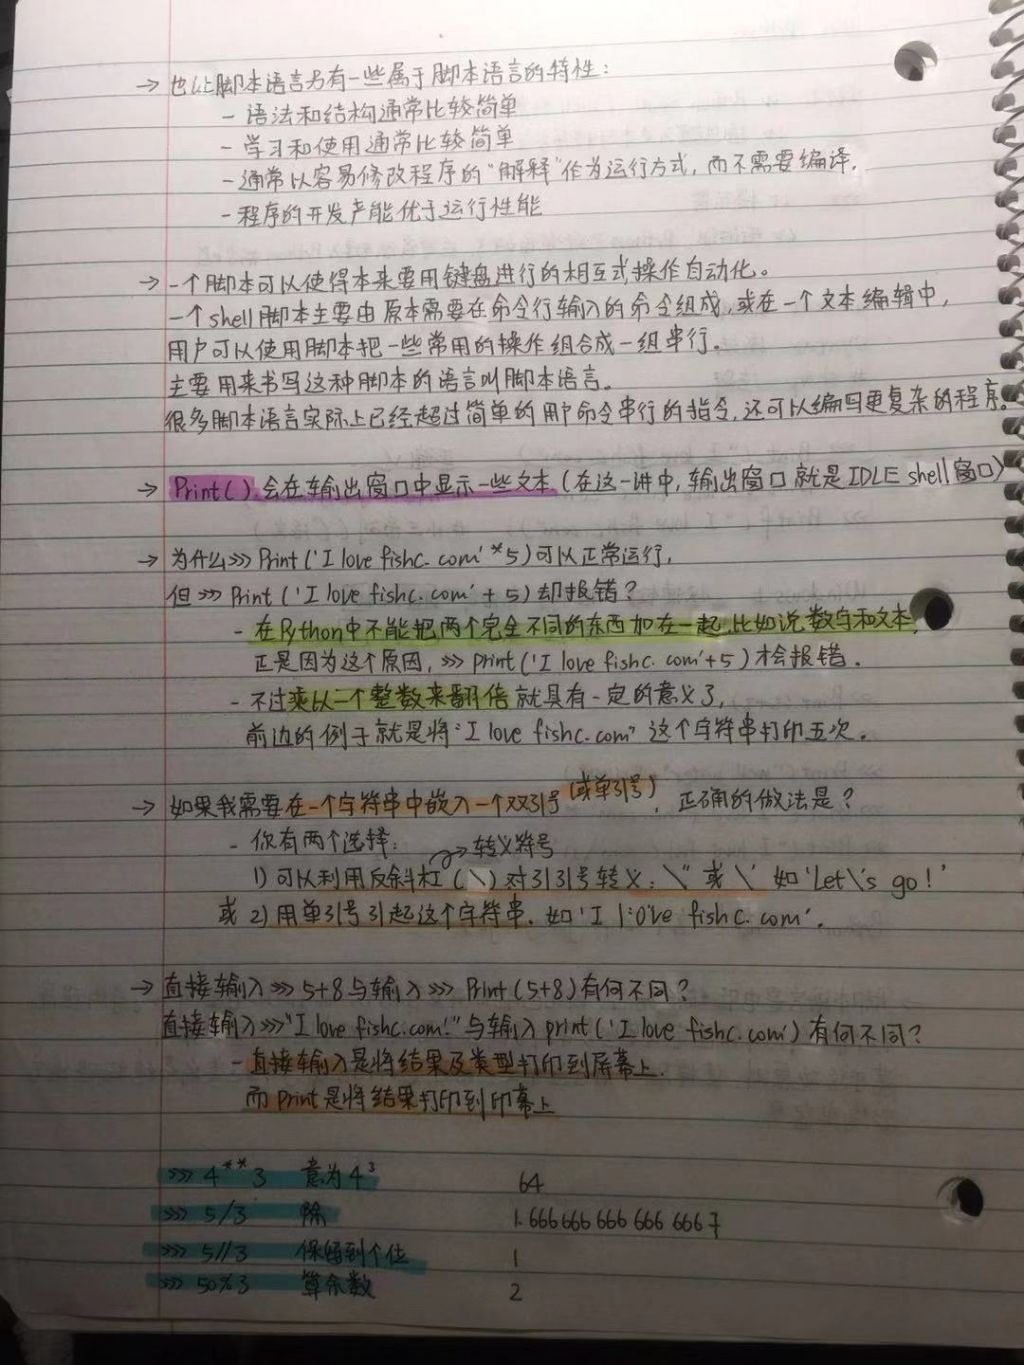 → 也让脚本语言另有一些属于脚本语言的特性：
- 语法和结构通常比较简单
- 学习和使用通常比较简单
- 通常以容易修改程序的"解释"作为运行方式，而不需要编译.
- 程序的开发产能优于运行性能
→ 一个脚本可以使得本来要用键盘进行的相互式操作自动化。
一个shell脚本主要由原本需要在命令行输入的命令组成，或在一个文本编辑中，
用户可以使用脚本把一些常用的操作组合成一组串行。
主要用来书写这种脚本的语言叫脚本语言。
很多脚本语言实际上已经超过简单的用户命令串行的指令，还可以编写更复杂的程序。
→ Print() 会在输出窗口中显示一些文本（在这一讲中，输出窗口就是IDLE shell窗口）
→ 为什么>>> Print ('I love fishc.com' *5) 可以正常运行，
但 >>> Print ('I love fishc.com' + 5) 却报错？
- 在Python中不能把两个完全不同的东西加在一起，比如说数字和文本，
正是因为这个原因，>>> print('I love fishc.com'+5) 才会报错.
- 不过乘以一个整数来翻倍就具有一定的意义了，
前边的例子就是将"I love fishc.com" 这个字符串打印五次.
→ 如果我需要在一个字符串中嵌入一个双引号（或单引号），正确的做法是？
- 你有两个选择：
→ 转义符号
1) 可以利用反斜杠（\）对引号转义：\" 或 \' 如 'Let\'s go!'
或 2) 用单引号引起这个字符串. 如 'I love fishc.com'.
→ 直接输入 >>> 5+8 与输入 >>> Print (5+8) 有何不同？
直接输入 >>> "I love fishc.com" 与输入 print ('I love fishc.com') 有何不同？
- 直接输入是将结果及类型打印到屏幕上.
而 Print 是将结果打印到印幕上
>>> 4**3 意为 4³ 64
>>> 5/3 除 1.6666666666666667
>>> 5//3 保留到个位 1
>>> 50%3 算余数 2